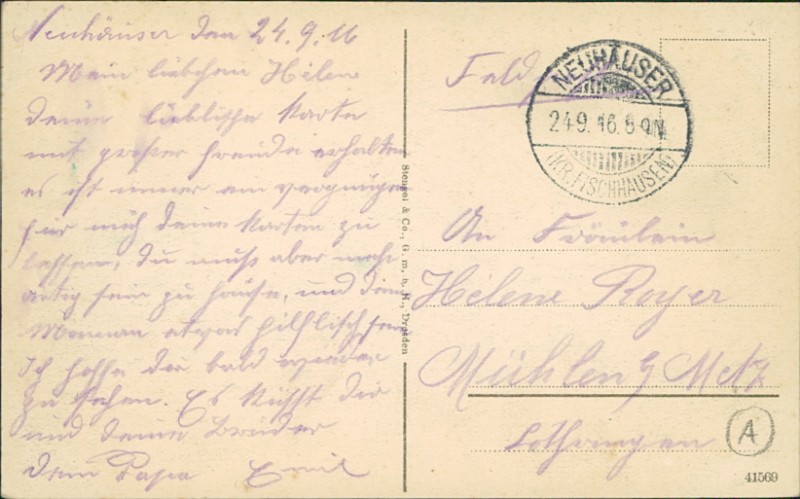 Neuhäuser den 24.9.16
Mein liebchen Helene
deine liebliche Karte
mit großer freude erhalten
es ist immer ein vergnügen
für mich deine Karten zu
lessen, du muß aber
artig sein zu hause, und deine
Maman etvas hilflisch sein
Ich hoffe dir bald wieder
zu sehen. Es küsst dir
und deine Brüder
dein Papa Emil
Stengel & Co., G. m. b. H., Dresden
Feld
NEUHÄUSER
24.9.16. 8-9N.
(KR. FISCHHAUSEN)
An Fräulein
Helene Royer
Mühlen b/ Metz
Lothringen
A
41569